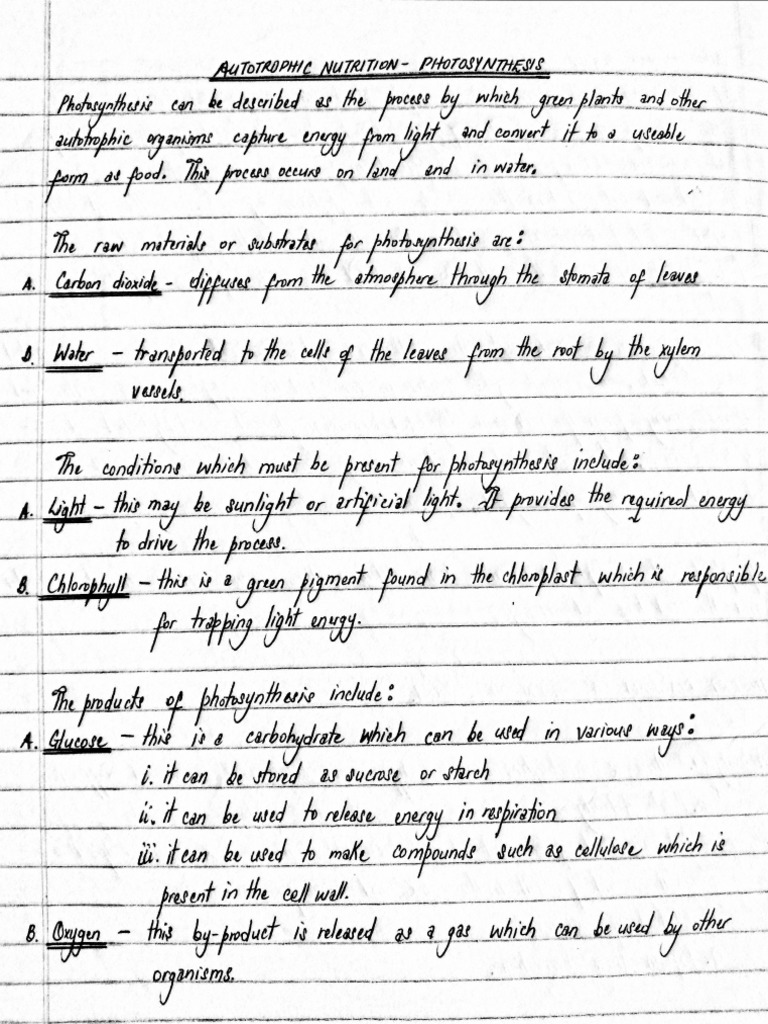 AUTOTROPHIC NUTRITION - PHOTOSYNTHESIS
Photosynthesis can be described as the process by which green plants and other
autotrophic organisms capture energy from light and convert it to a useable
form as food. This process occurs on land and in water.
The raw materials or substrates for photosynthesis are:
A. Carbon dioxide - diffuses from the atmosphere through the stomata of leaves
B. Water - transported to the cells of the leaves from the root by the xylem
vessels.
The conditions which must be present for photosynthesis include:
A. Light - this may be sunlight or artificial light. It provides the required energy
to drive the process.
B. Chlorophyll - this is a green pigment found in the chloroplast which is responsible
for trapping light energy.
The products of photosynthesis include:
A. Glucose - this is a carbohydrate which can be used in various ways:
i. it can be stored as sucrose or starch
ii. it can be used to release energy in respiration
iii. it can be used to make compounds such as cellulose which is
present in the cell wall.
B. Oxygen - this by-product is released as a gas which can be used by other
organisms.